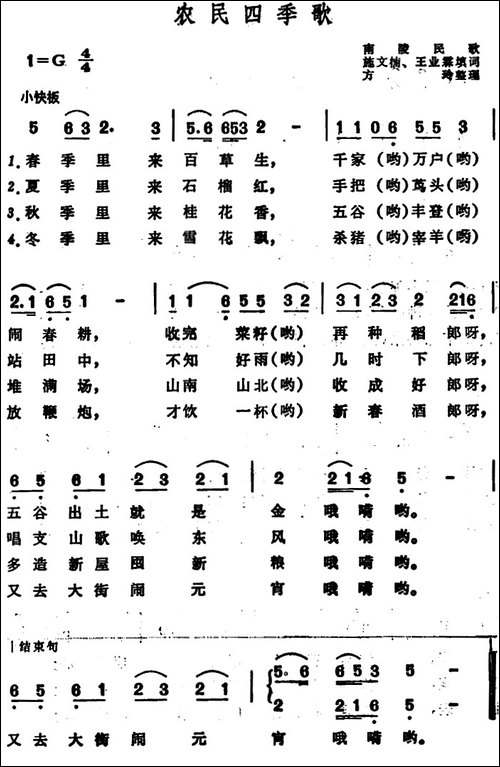 农民四季歌
1=G 4/4
南陵民歌
施文楠、王业霖填词
方玲整理
小快板
5 6 3 2. 3 | 5.6 653 2 - | 1 1 0 6 5 5 3 |
1.春季里来百草生,千家(哟)万户(哟)
2.夏季里来石榴红,手把(哟)茑头(哟)
3.秋季里来桂花香,五谷(哟)丰登(哟)
4.冬季里来雪花飘,杀猪(哟)宰羊(哟)
2.1 6 5 1 - | 1 1 6 5 5 3 2 | 3 1 2.3 2 216 |
闹春耕,收完菜籽(哟)再种稻郎呀,
站田中,不知好雨(哟)几时下郎呀,
堆满场,山南山北(哟)收成好郎呀,
放鞭炮,才饮一杯(哟)新春酒郎呀,
6 5 6 1 2 3 2 1 | 2 2 1 6 5 - |
五谷出土就是金哦嗬哟。
唱支山歌唤东风哦嗬哟。
多造新屋囤新粮哦嗬哟。
又去大街闹元宵哦嗬哟。
结束句
6 5 6 1 2 3 2 1 | 5. 6 6 5 3 5 -
2 2 1 6 5 -
又去大街闹元宵哦嗬哟。